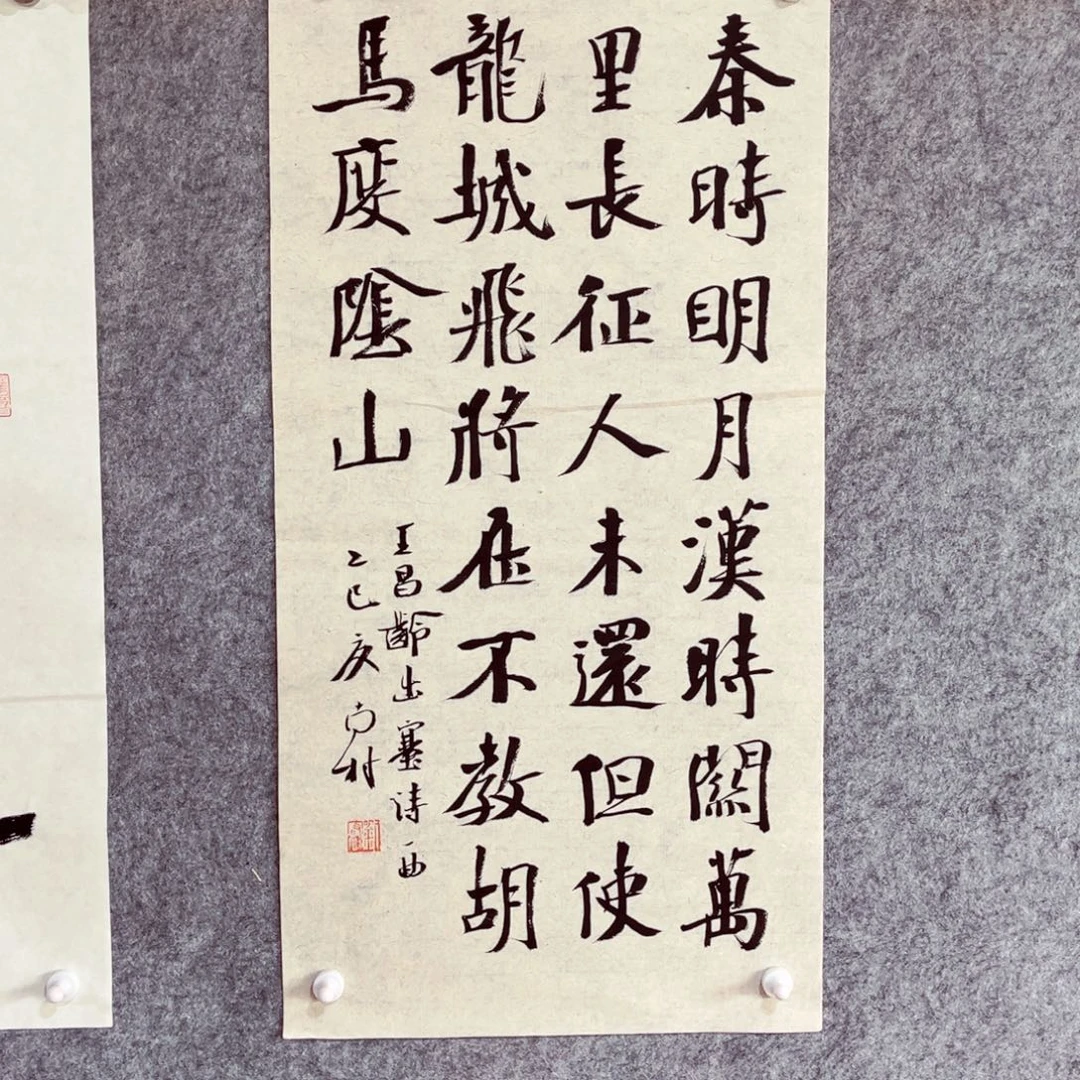 秦時明月漢時關萬
里長征人未還但使
龍城飛將在不教胡
馬度陰山
王昌齡出塞詩一曲
乙巳夏 向村